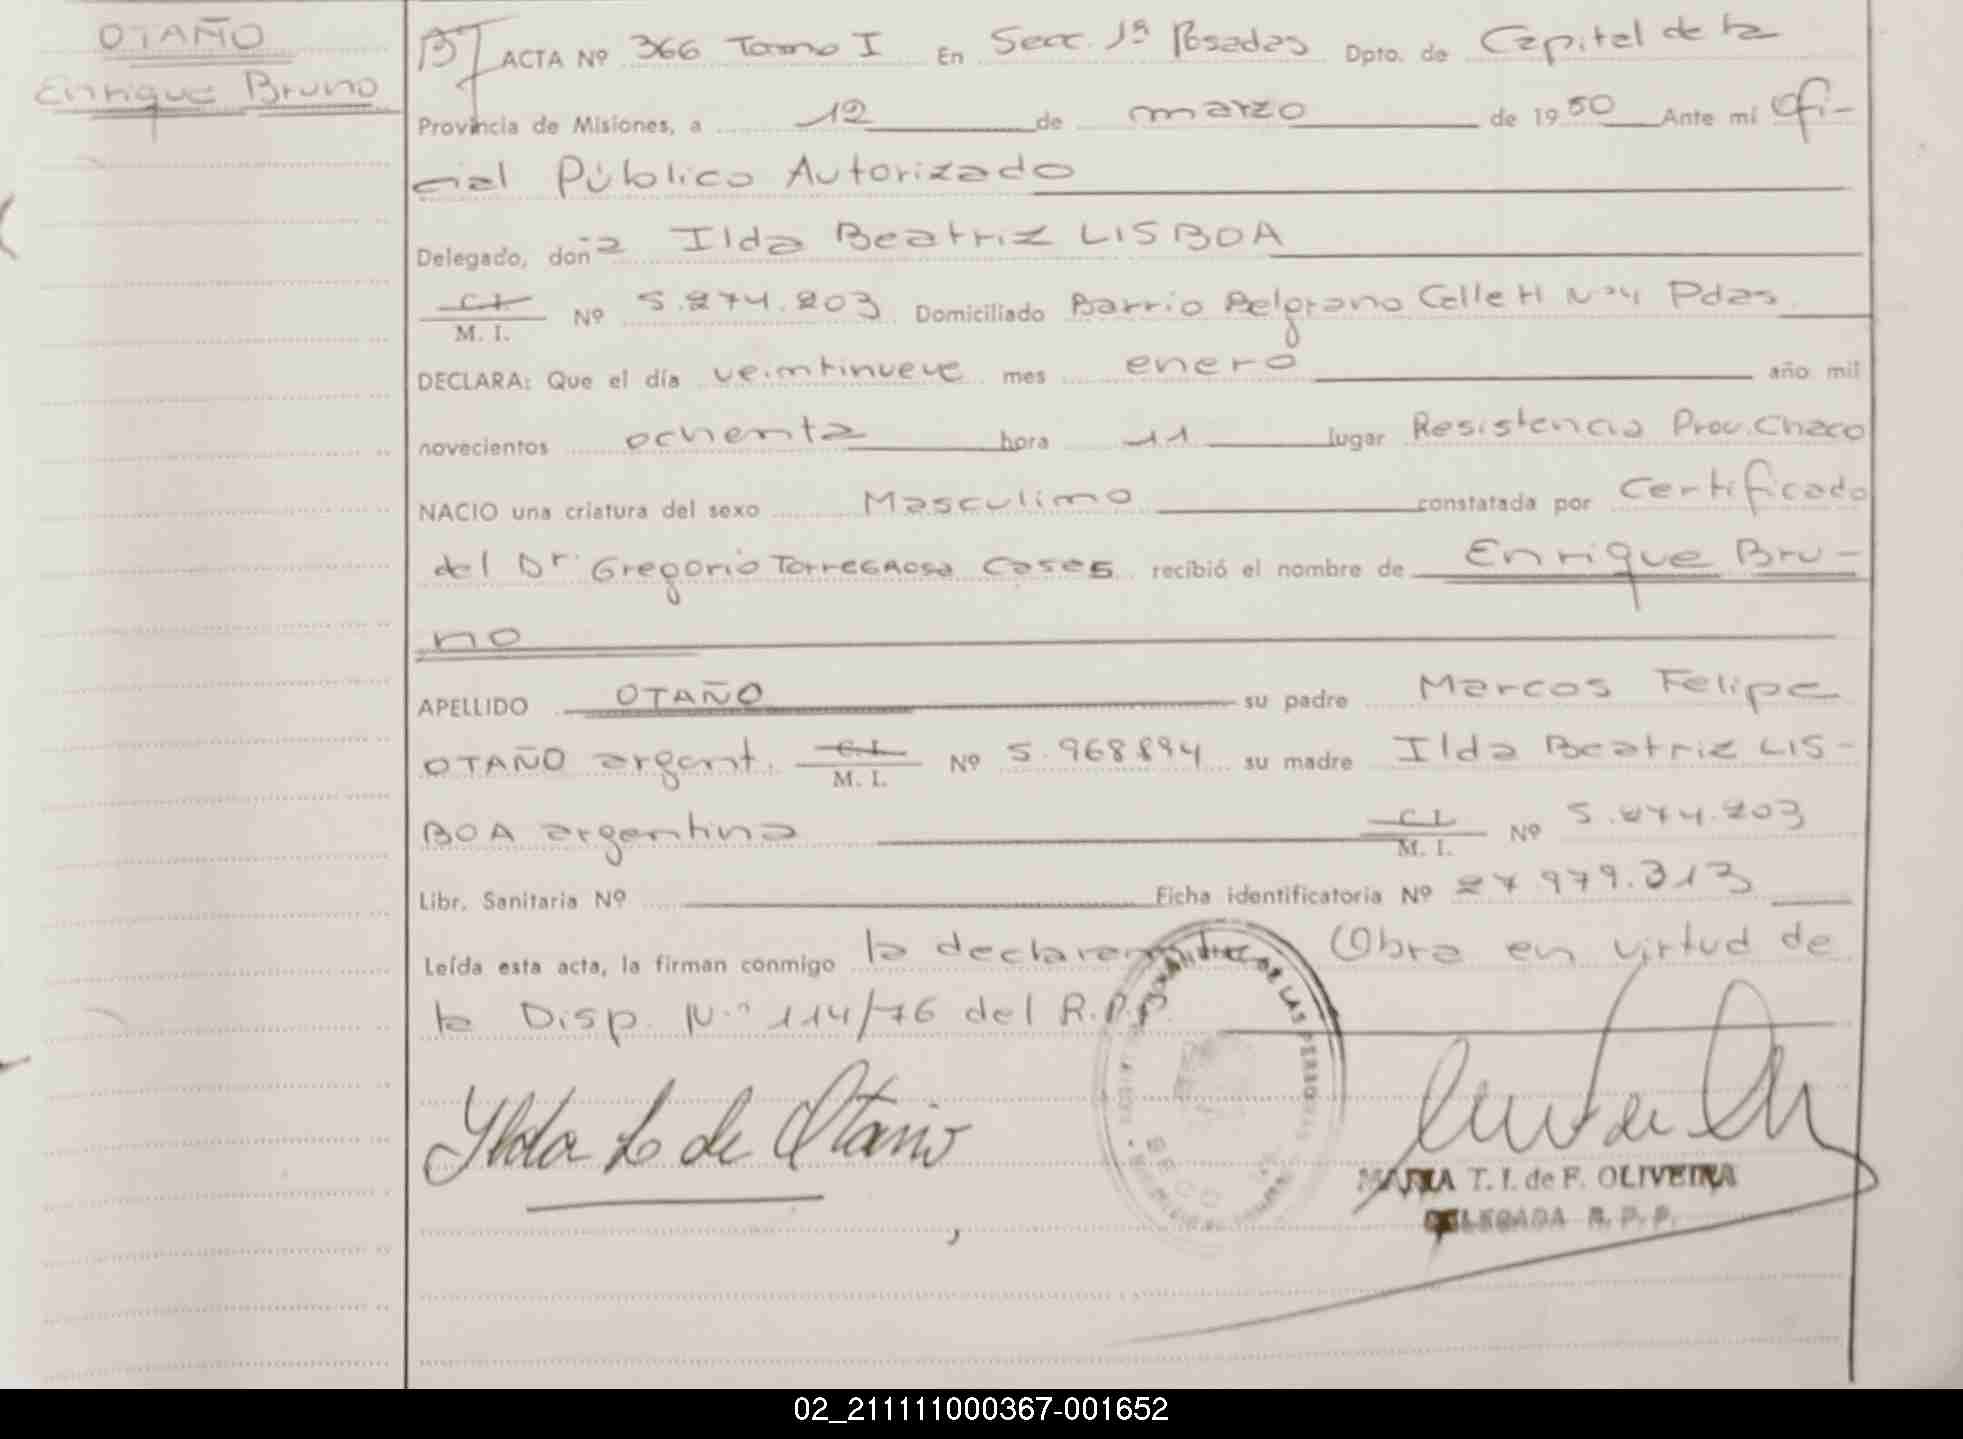 OTAÑO
Enrique Bruno
ACTA Nº 366 Tomo I En Secc. 1ª Posadas Dpto. de Capital de la
Provincia de Misiones, a 12 de marzo de 1980 Ante mí Ofi-
cial Público Autorizado
Delegado, doña Ilda Beatriz LISBOA
C.I.
M. I. Nº 5.274.203 Domiciliado Barrio Belgrano Calle H Nº 4 Pdas.
DECLARA: Que el día veintinueve mes enero año mil
novecientos ochenta hora 11 lugar Resistencia Prov. Chaco
NACIO una criatura del sexo Masculino constatada por Certificado
del Dr. Gregorio Torregrosa Cases recibió el nombre de Enrique Bru-
no
APELLIDO OTAÑO su padre Marcos Felipe
OTAÑO argent. C.I. M. I. Nº 5.968.894 su madre Ilda Beatriz LIS-
BOA argentina C.I. M. I. Nº 5.274.203
Libr. Sanitaria Nº Ficha identificatoria Nº 27.979.313
Leída esta acta, la firman conmigo la declarante Obra en virtud de
la Disp. N.º 114/76 del R.P.P.
Ilda L de Otaño
MARIA T. I. de F. OLIVEIRA
DELEGADA R. P. P.
02_211111000367-001652